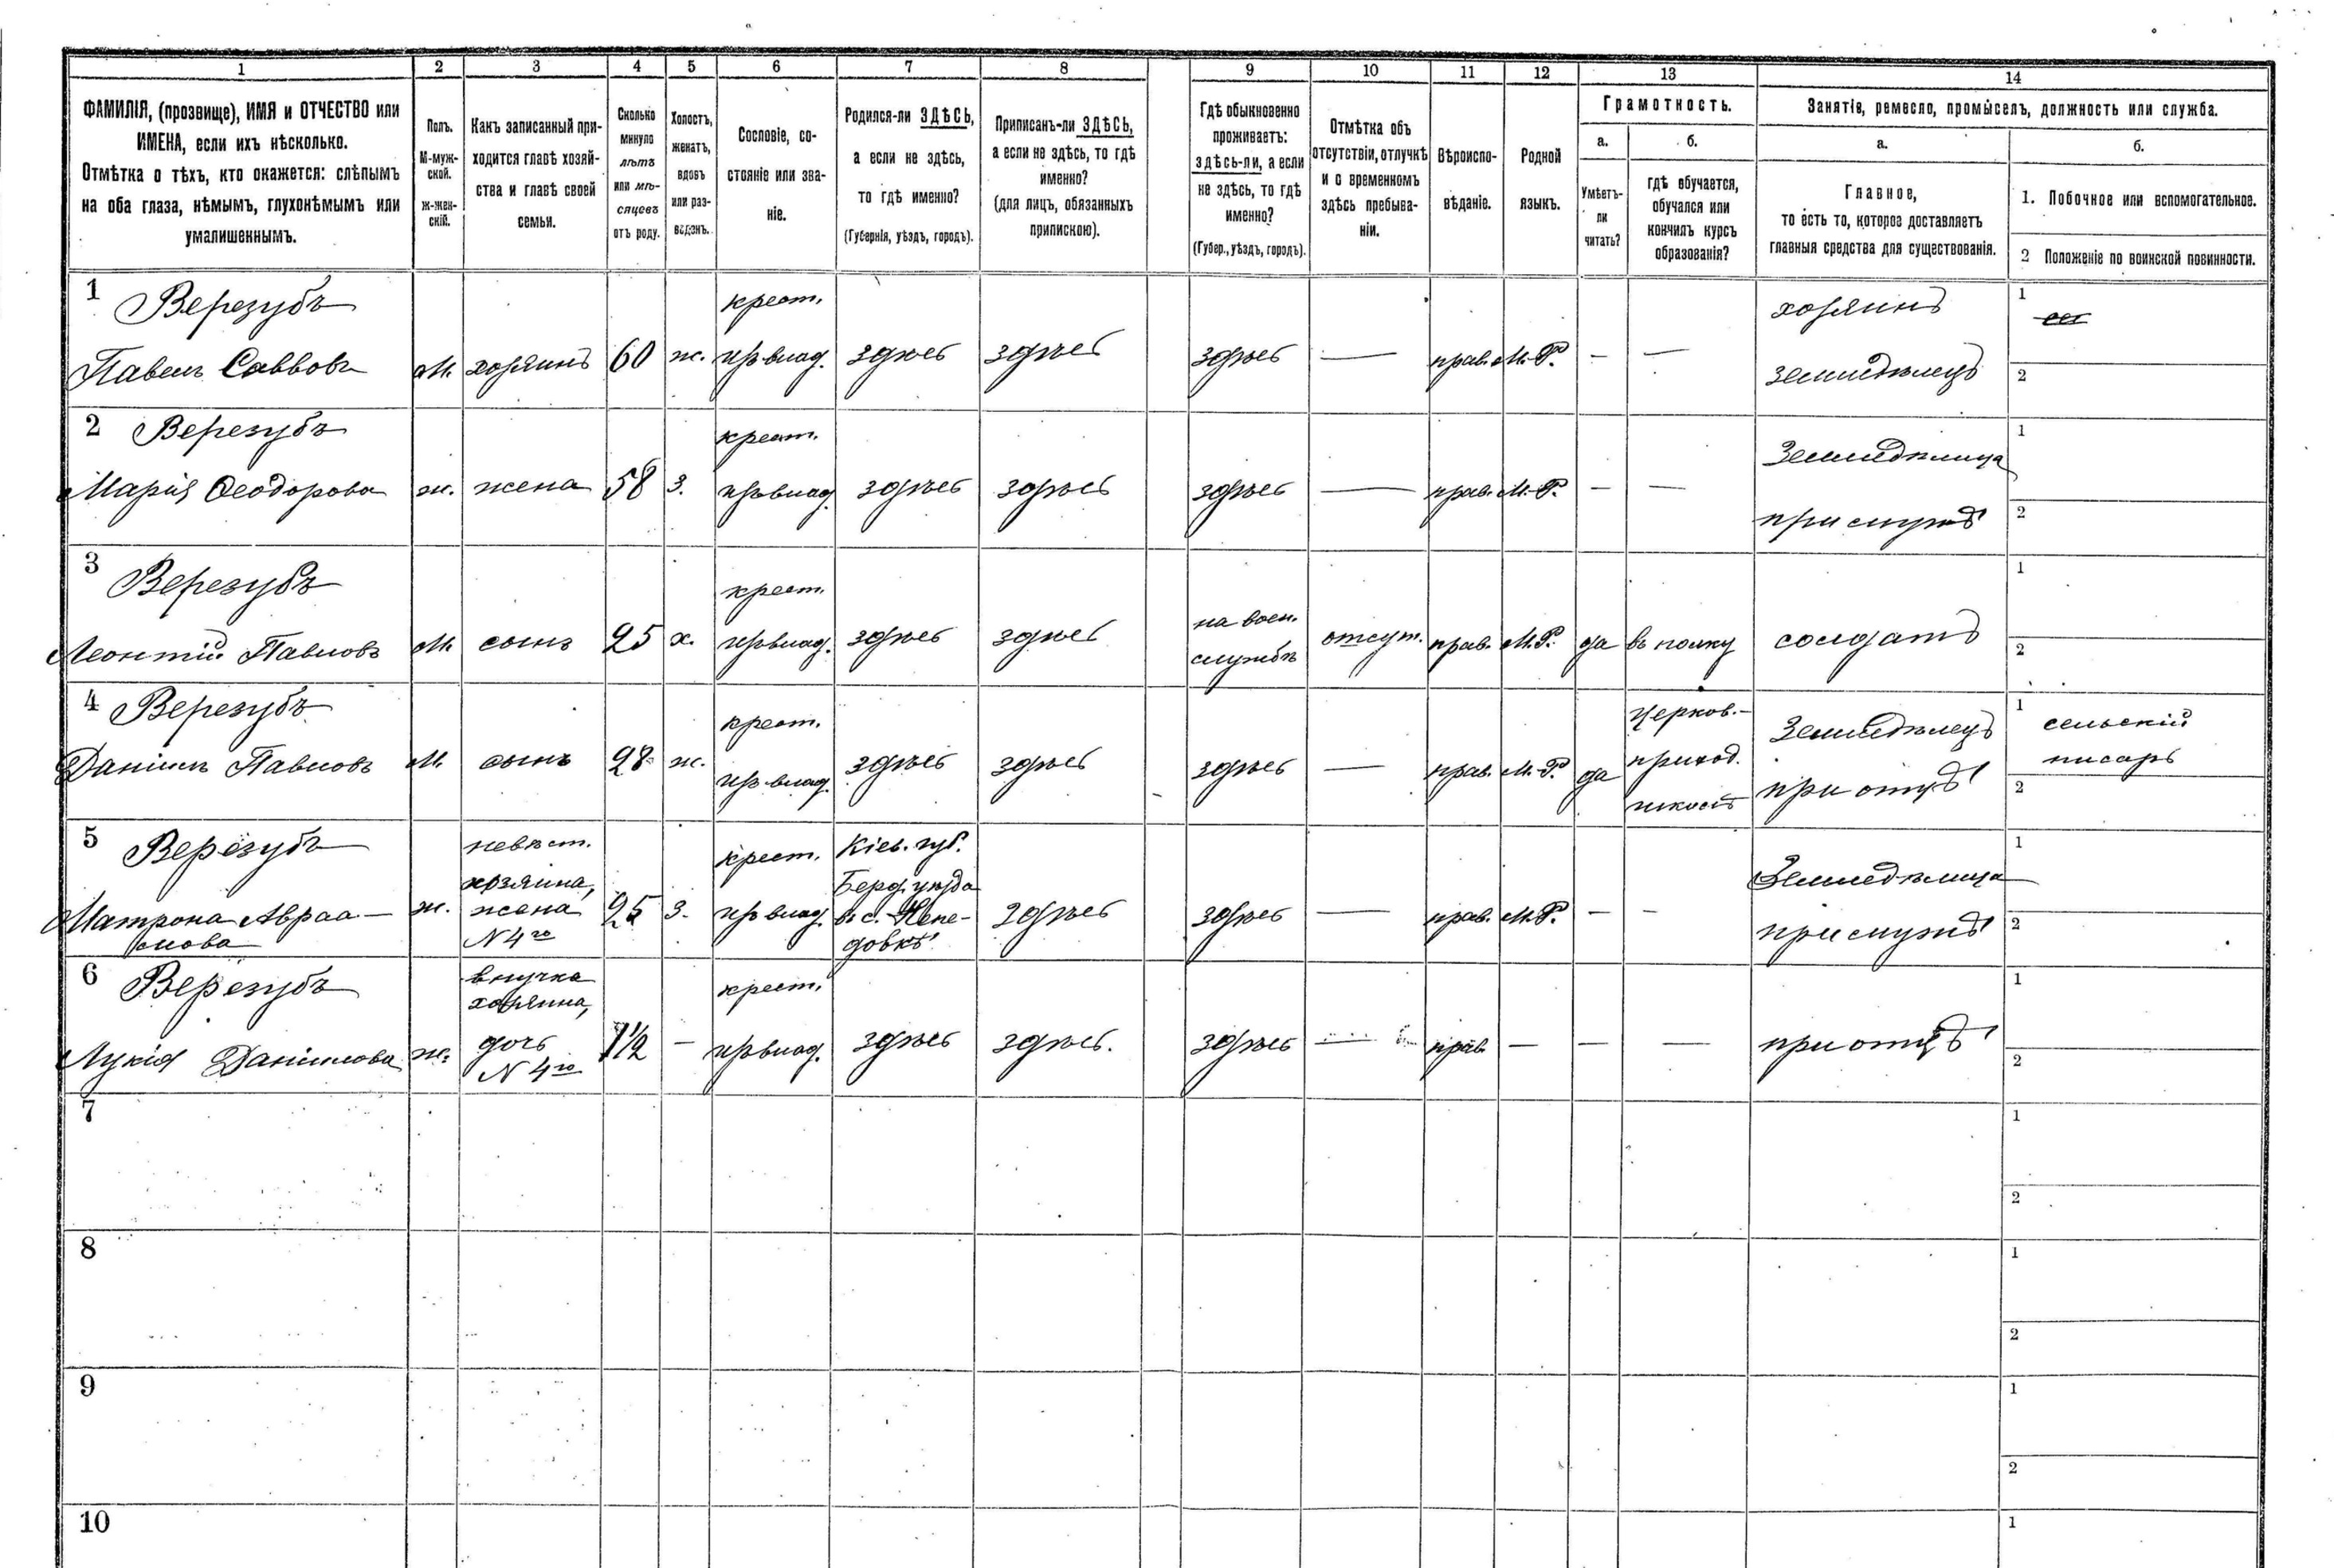 1 2 3 4 5 6 7 8 9 10 11 12 13 14
ФАМИЛІЯ, (прозвище), ИМЯ и ОТЧЕСТВО или
ИМЕНА, если ихъ нѣсколько.
Отмѣтка о тѣхъ, кто окажется: слѣпымъ
на оба глаза, нѣмымъ, глухонѣмымъ или
умалишеннымъ.
Полъ.
М-муж-
ской.
Ж-жен-
скій.
Какъ записанный при-
ходится главѣ хозяй-
ства и главѣ своей
семьи.
Сколько
минуло
лѣтъ
или мѣ-
сяцевъ
отъ роду.
Холостъ,
женатъ,
вдовъ
или раз-
веденъ.
Сословіе, со-
стояніе или зва-
ніе.
Родился-ли ЗДѢСЬ,
а если не здѣсь,
то гдѣ именно?
(Губернія, уѣздъ, городъ).
Приписанъ-ли ЗДѢСЬ,
а если не здѣсь, то гдѣ
именно?
(для лицъ, обязанныхъ
припискою).
Гдѣ обыкновенно
проживаетъ:
здѣсь-ли, а если
не здѣсь, то гдѣ
именно?
(Губер., уѣздъ, городъ).
Отмѣтка объ
отсутствіи, отлучкѣ
и о временномъ
здѣсь пребыва-
ніи.
Вѣроиспо-
вѣданіе.
Родной
языкъ.
Грамотность.
а.
Умѣетъ-
ли
читать?
б.
гдѣ обучается,
обучался или
кончилъ курсъ
образованія?
Занятіе, ремесло, промыселъ, должность или служба.
а.
Главное,
то есть то, которое доставляетъ
главныя средства для существованія.
б.
1. Побочное или вспомогательное.
2 Положеніе по воинской повинности.
1 Верезубъ
Павелъ Саввовъ
М.
хозяинъ
60
ж.
крест.
из влад.
здѣсь
здѣсь
здѣсь
—
прав.
М.-Р.
—
—
хозяинъ
земледѣлецъ
1
2
2 Верезубъ
Марія Ѳеодорова
ж.
жена
58
з.
крест.
из влад.
здѣсь
здѣсь
здѣсь
—
прав.
М.-Р.
—
—
Земледѣлица
при мужѣ
1
2
3
Верезубъ
Леонтій Павловъ
М.
сынъ
25
х.
крест.
из влад.
здѣсь
здѣсь
на воен.
службѣ
отсут.
прав.
М.Р.
да
въ полку
солдатъ
1
2
4 Верезубъ
Даніилъ Павловъ
М.
сынъ
28
ж.
крест.
из влад.
здѣсь
здѣсь
здѣсь
—
прав.
М.-Р.
да
церков.-
приход.
школѣ
Земледѣлецъ
при отцѣ
1 сельскій
писарь
2
5 Верезубъ
Матрона Авраа-
мова
ж.
невѣст.
хозяина,
жена
N 4го
25
з.
крест.
из влад.
Кіев. губ.
Берд. уѣзда
въ с. Непе-
довкѣ
здѣсь
здѣсь
—
прав.
М.Р.
—
—
Земледѣлица
при мужѣ
1
2
6 Верезубъ
Лукія Даніилова
ж.
внучка
хозяина,
дочь
N 4го
1½
—
крест.
из влад.
здѣсь
здѣсь.
здѣсь
—
прав.
—
—
—
при отцѣ
1
2
7
1
2
8
1
2
9
1
2
10
1